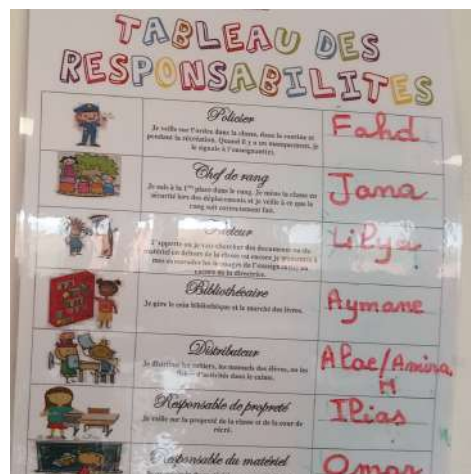 TABLEAU DES
RESPONSABILITES
Policier
Je veille sur l'ordre dans la classe, dans la cantine et
pendant la récréation. Quand il y a un manquement, je
le signale à l'enseignant(e).
Fahd
Chef de rang
Je suis à la 1ère place dans le rang. Je mène la classe en
sécurité lors des déplacements et je veille à ce que le
rang soit correctement fait.
Jana
Lilya
J'apporte ou je vais chercher des documents ou du
matériel en dehors de la classe ou encore je
Bibliothécaire
Je gère le coin bibliothèque et la marche des livres.
Aymane
Distributeur
Je distribue les cahiers, les manuels des élèves, ou les
fiches d'activités dans le casier.
Alae/Amina
H
Responsable de propreté
Je veille sur la propreté de la classe et de la cour de
récré.
Ilias
Responsable du matériel
Omar